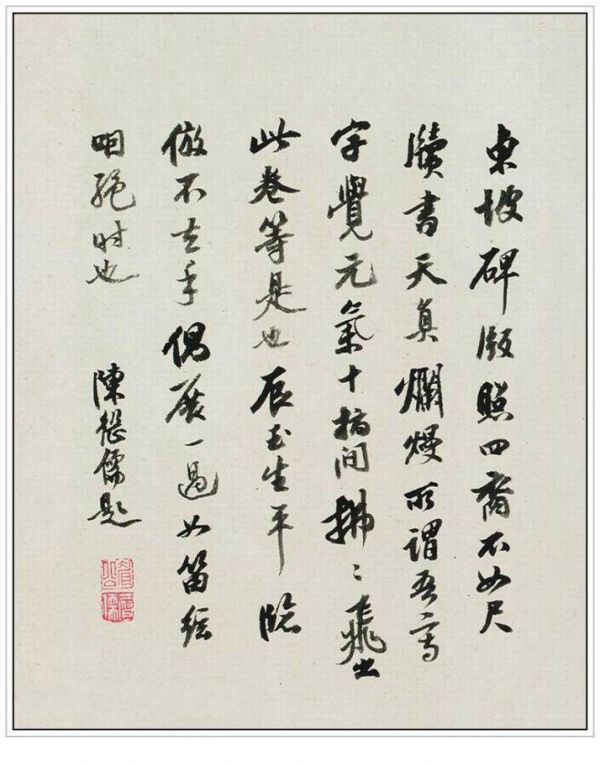 東坡碑版照四裔不如尺
牘書天真爛熳所謂吾寫
字覺元氣十指間拂〻飛出
此卷等是也辰玉生平臨
倣不去手偶展一過如笛絃
咽絕时也
陳繼儒題